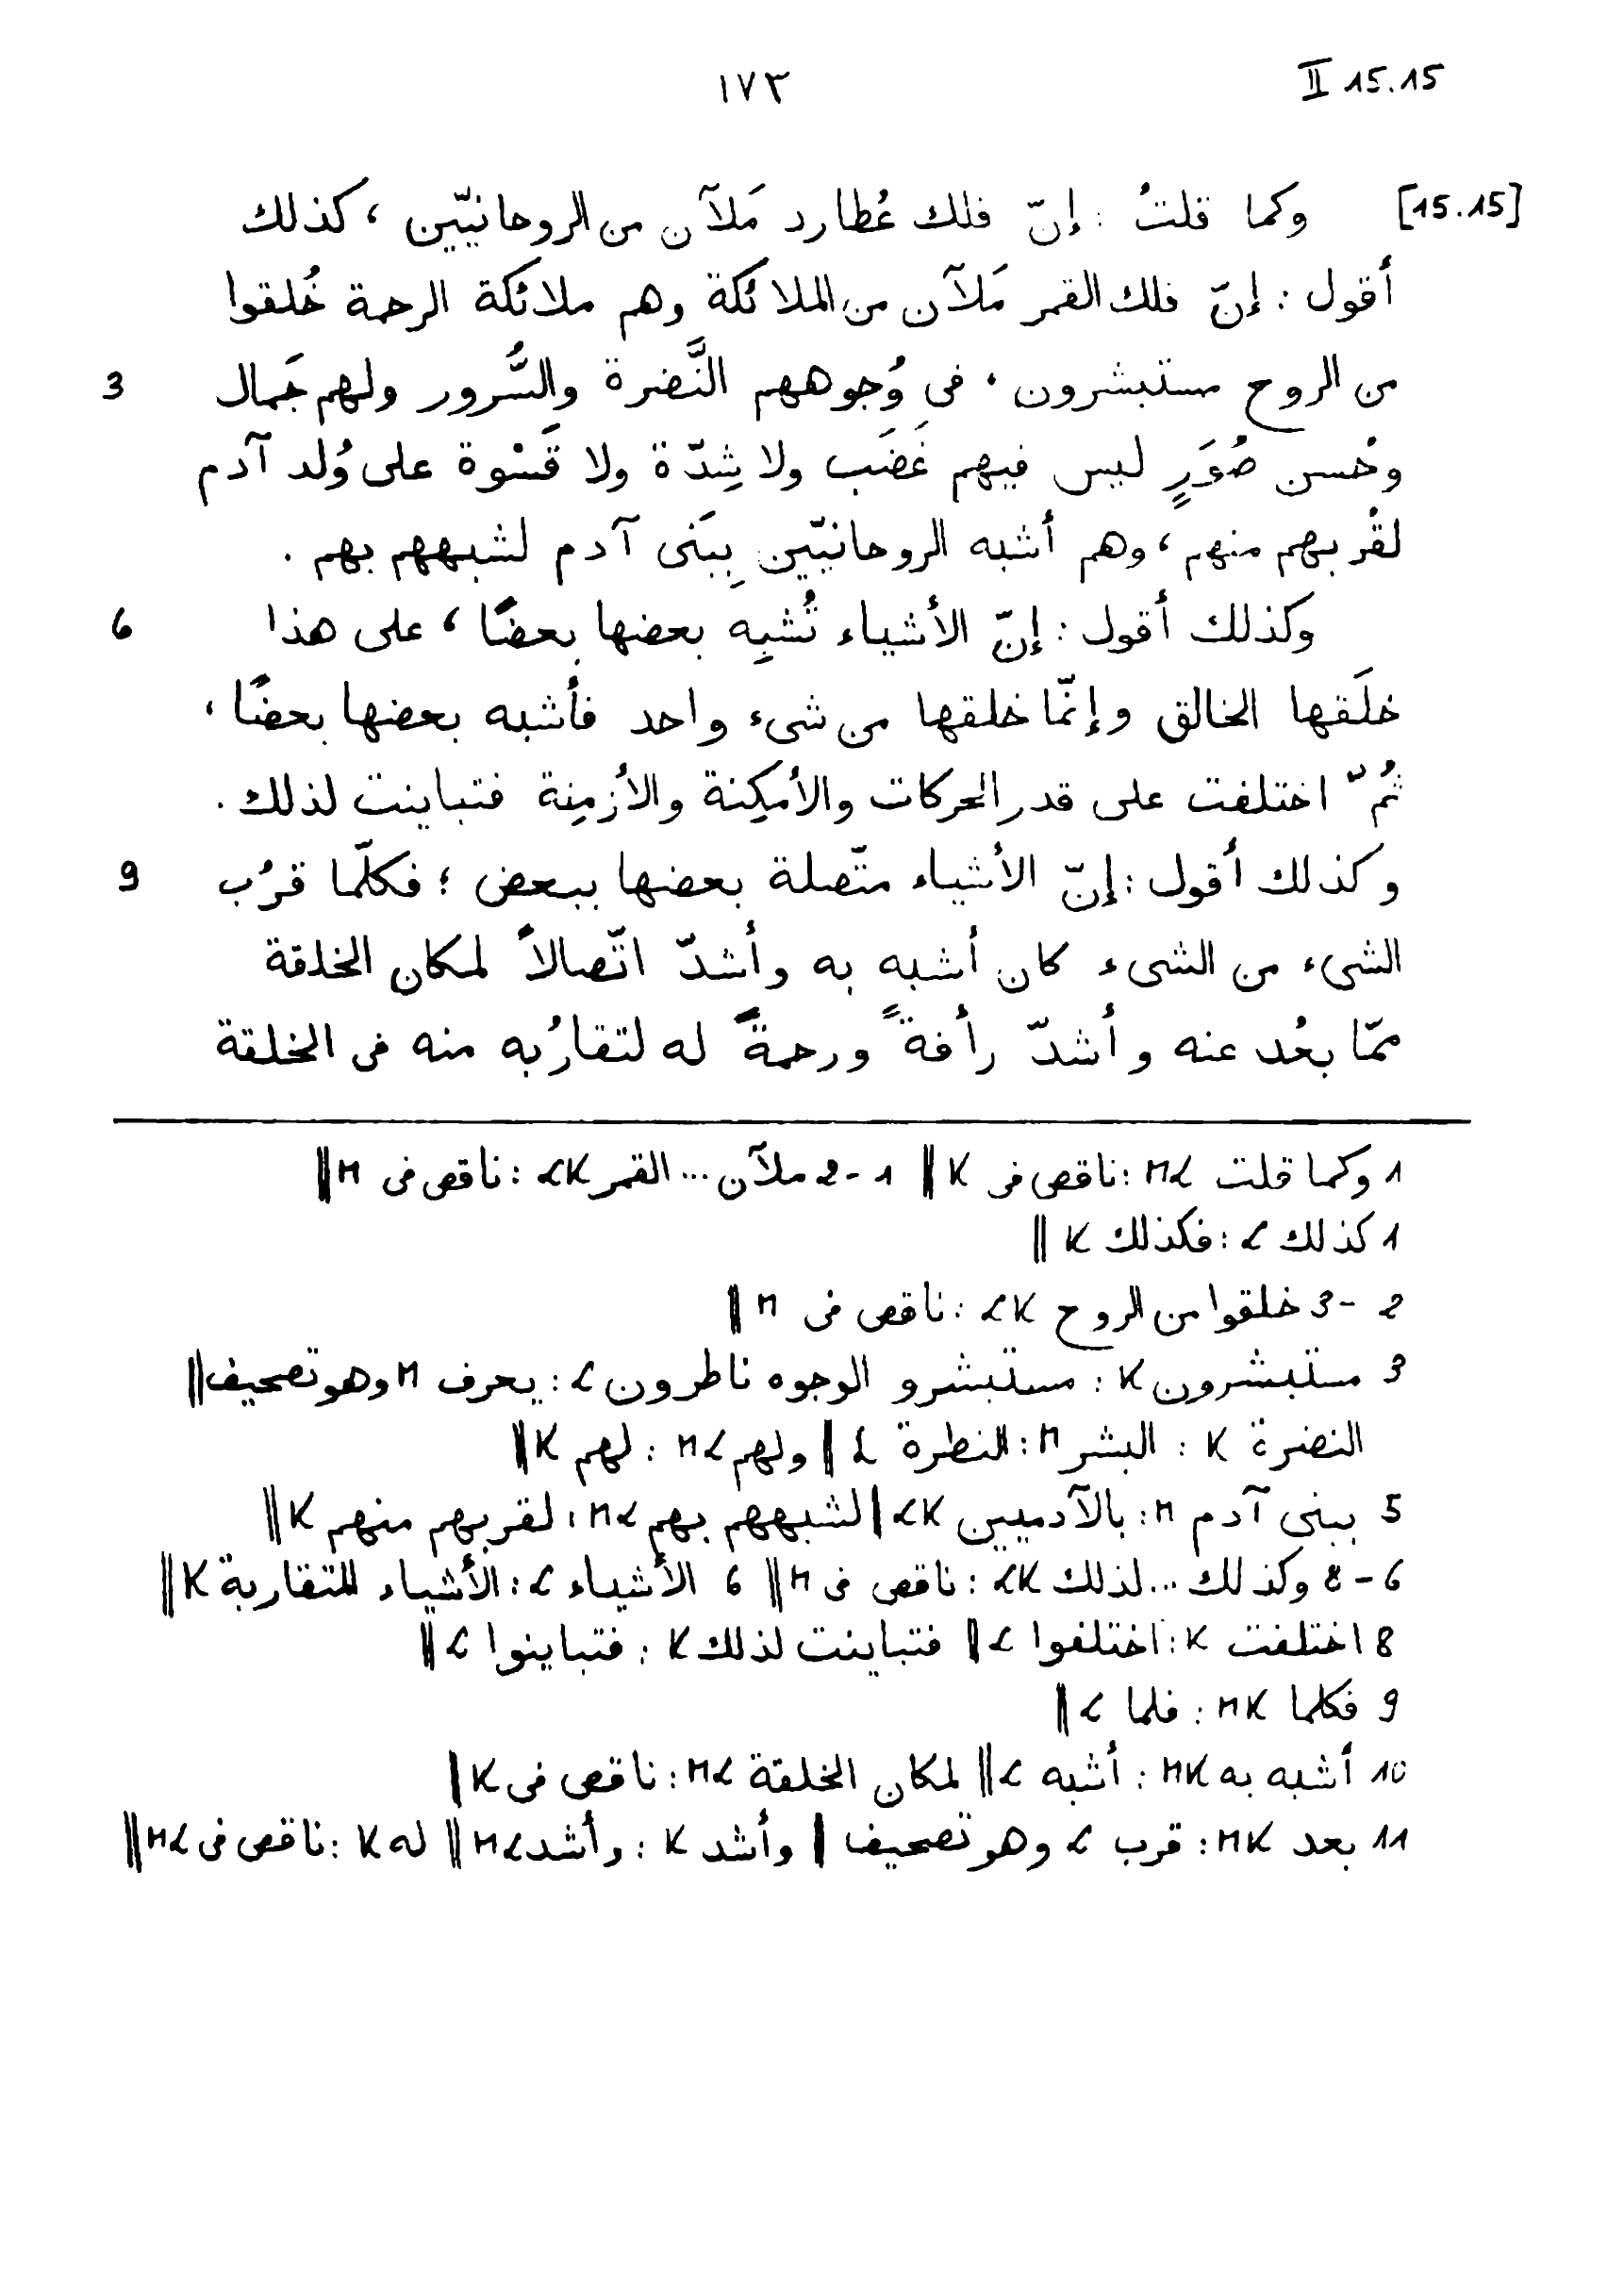 II 15.15 ١٧٣
[15.15] وكما قلتُ : إنّ فلك عُطارد مَلآن من الروحانيّين ، كذلك
أقول : إنّ فلك القمر مَلآن من الملائكة وهم ملائكة الرحمة خُلقوا
من الروح مستبشرون ، فى وُجوههم النَّضرة والسُّرور ولهم جَمال 3
وحُسن صُوَرٍ ليس فيهم غَضَب ولا شِدّة ولا قَسْوة على وُلد آدم
لقُربهم منهم ، وهم أشبه الروحانيّين بِبَنى آدم لشبههم بهم .
وكذلك أقول : إنّ الأشياء تُشبِه بعضها بعضًا ، على هذا 6
خلَقها الخالق وإنّما خلقها من شىء واحد فأشبه بعضها بعضًا ،
ثُمّ اختلفت على قدر الحركات والأمكِنة والأزمِنة فتباينت لذلك .
وكذلك أقول : إنّ الأشياء متّصلة بعضها ببعض ؛ فكلّما قرُب 9
الشىء من الشىء كان أشبه به وأشدّ اتّصالاً لمكان الخلقة
ممّا بعُد عنه وأشدّ رأفةً ورحمةً له لتقارُبه منه فى الخلقة
1 وكما قلت ML : ناقص فى K || 1-2 ملآن ... القمر LK : ناقص فى M ||
1 كذلك L : فكذلك K ||
2-3 خلقوا من الروح LK : ناقص فى M ||
3 مستبشرون K : مستبشرو الوجوه ناطرون L : يحرف M وهو تصحيف ||
النضرة K : البشر M : النطرة L || ولهم ML : لهم K ||
5 ببنى آدم M : بالآدميين LK || لشبههم بهم ML : لقربهم منهم K ||
6-8 وكذلك ... لذلك LK : ناقص فى M || 6 الأشياء L : الأشياء المتقاربة K ||
8 اختلفت K : اختلفوا L || فتباينت لذلك K : فتباينوا L ||
9 فكلما MK : فلما L ||
10 أشبه به MK : أشبه L || لمكان الخلقة ML : ناقص فى K ||
11 بعد MK : قرب L وهو تصحيف || وأشد K : وأشد ML || له K : ناقص فى ML ||